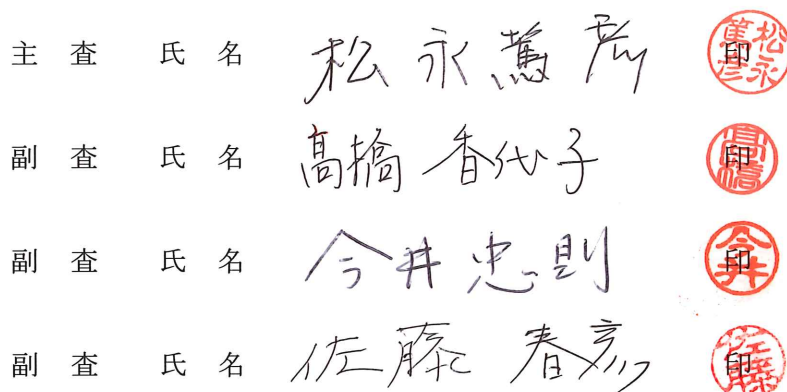 主査 氏名 松永篤彦 印
副査 氏名 髙橋香代子 印
副査 氏名 今井忠則 印
副査 氏名 佐藤春彦 印